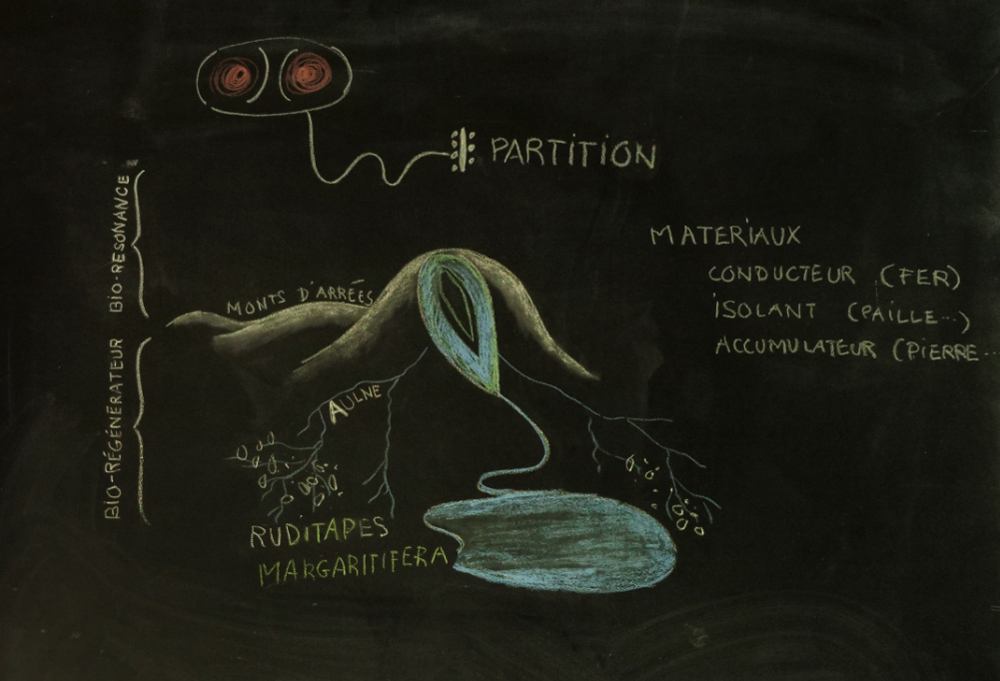 PARTITION
BIO-RESONANCE
MATERIAUX
CONDUCTEUR (FER)
ISOLANT (PAILLE...)
ACCUMULATEUR (PIERRE...
MONTS D'ARRÉES
BIO-RÉGÉNÉRATEUR
AULNE
RUDITAPES
MARGARITIFERA